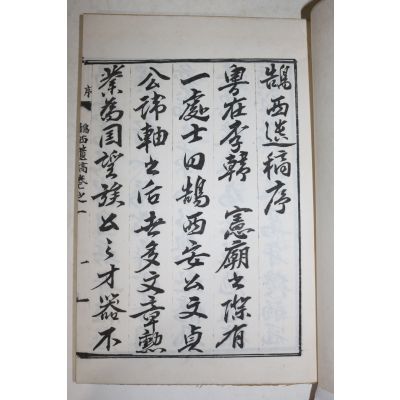 鵠西遺稿序
粤在李韓　憲廟之際有
一處士曰鵠西安公文貞
公諱軸之后世多文章勲
業為国望族公之才器不
序
鵠西遺稿卷之一
一